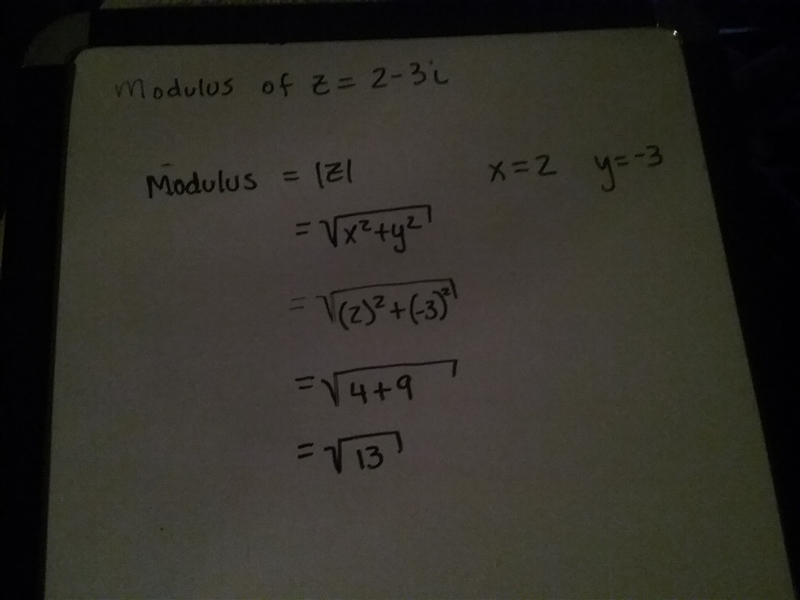 Modulus of z = 2-3i
Modulus = |z| x=2 y=-3
= √x²+y²
= √(2)²+(-3)²
= √4+9
= √13